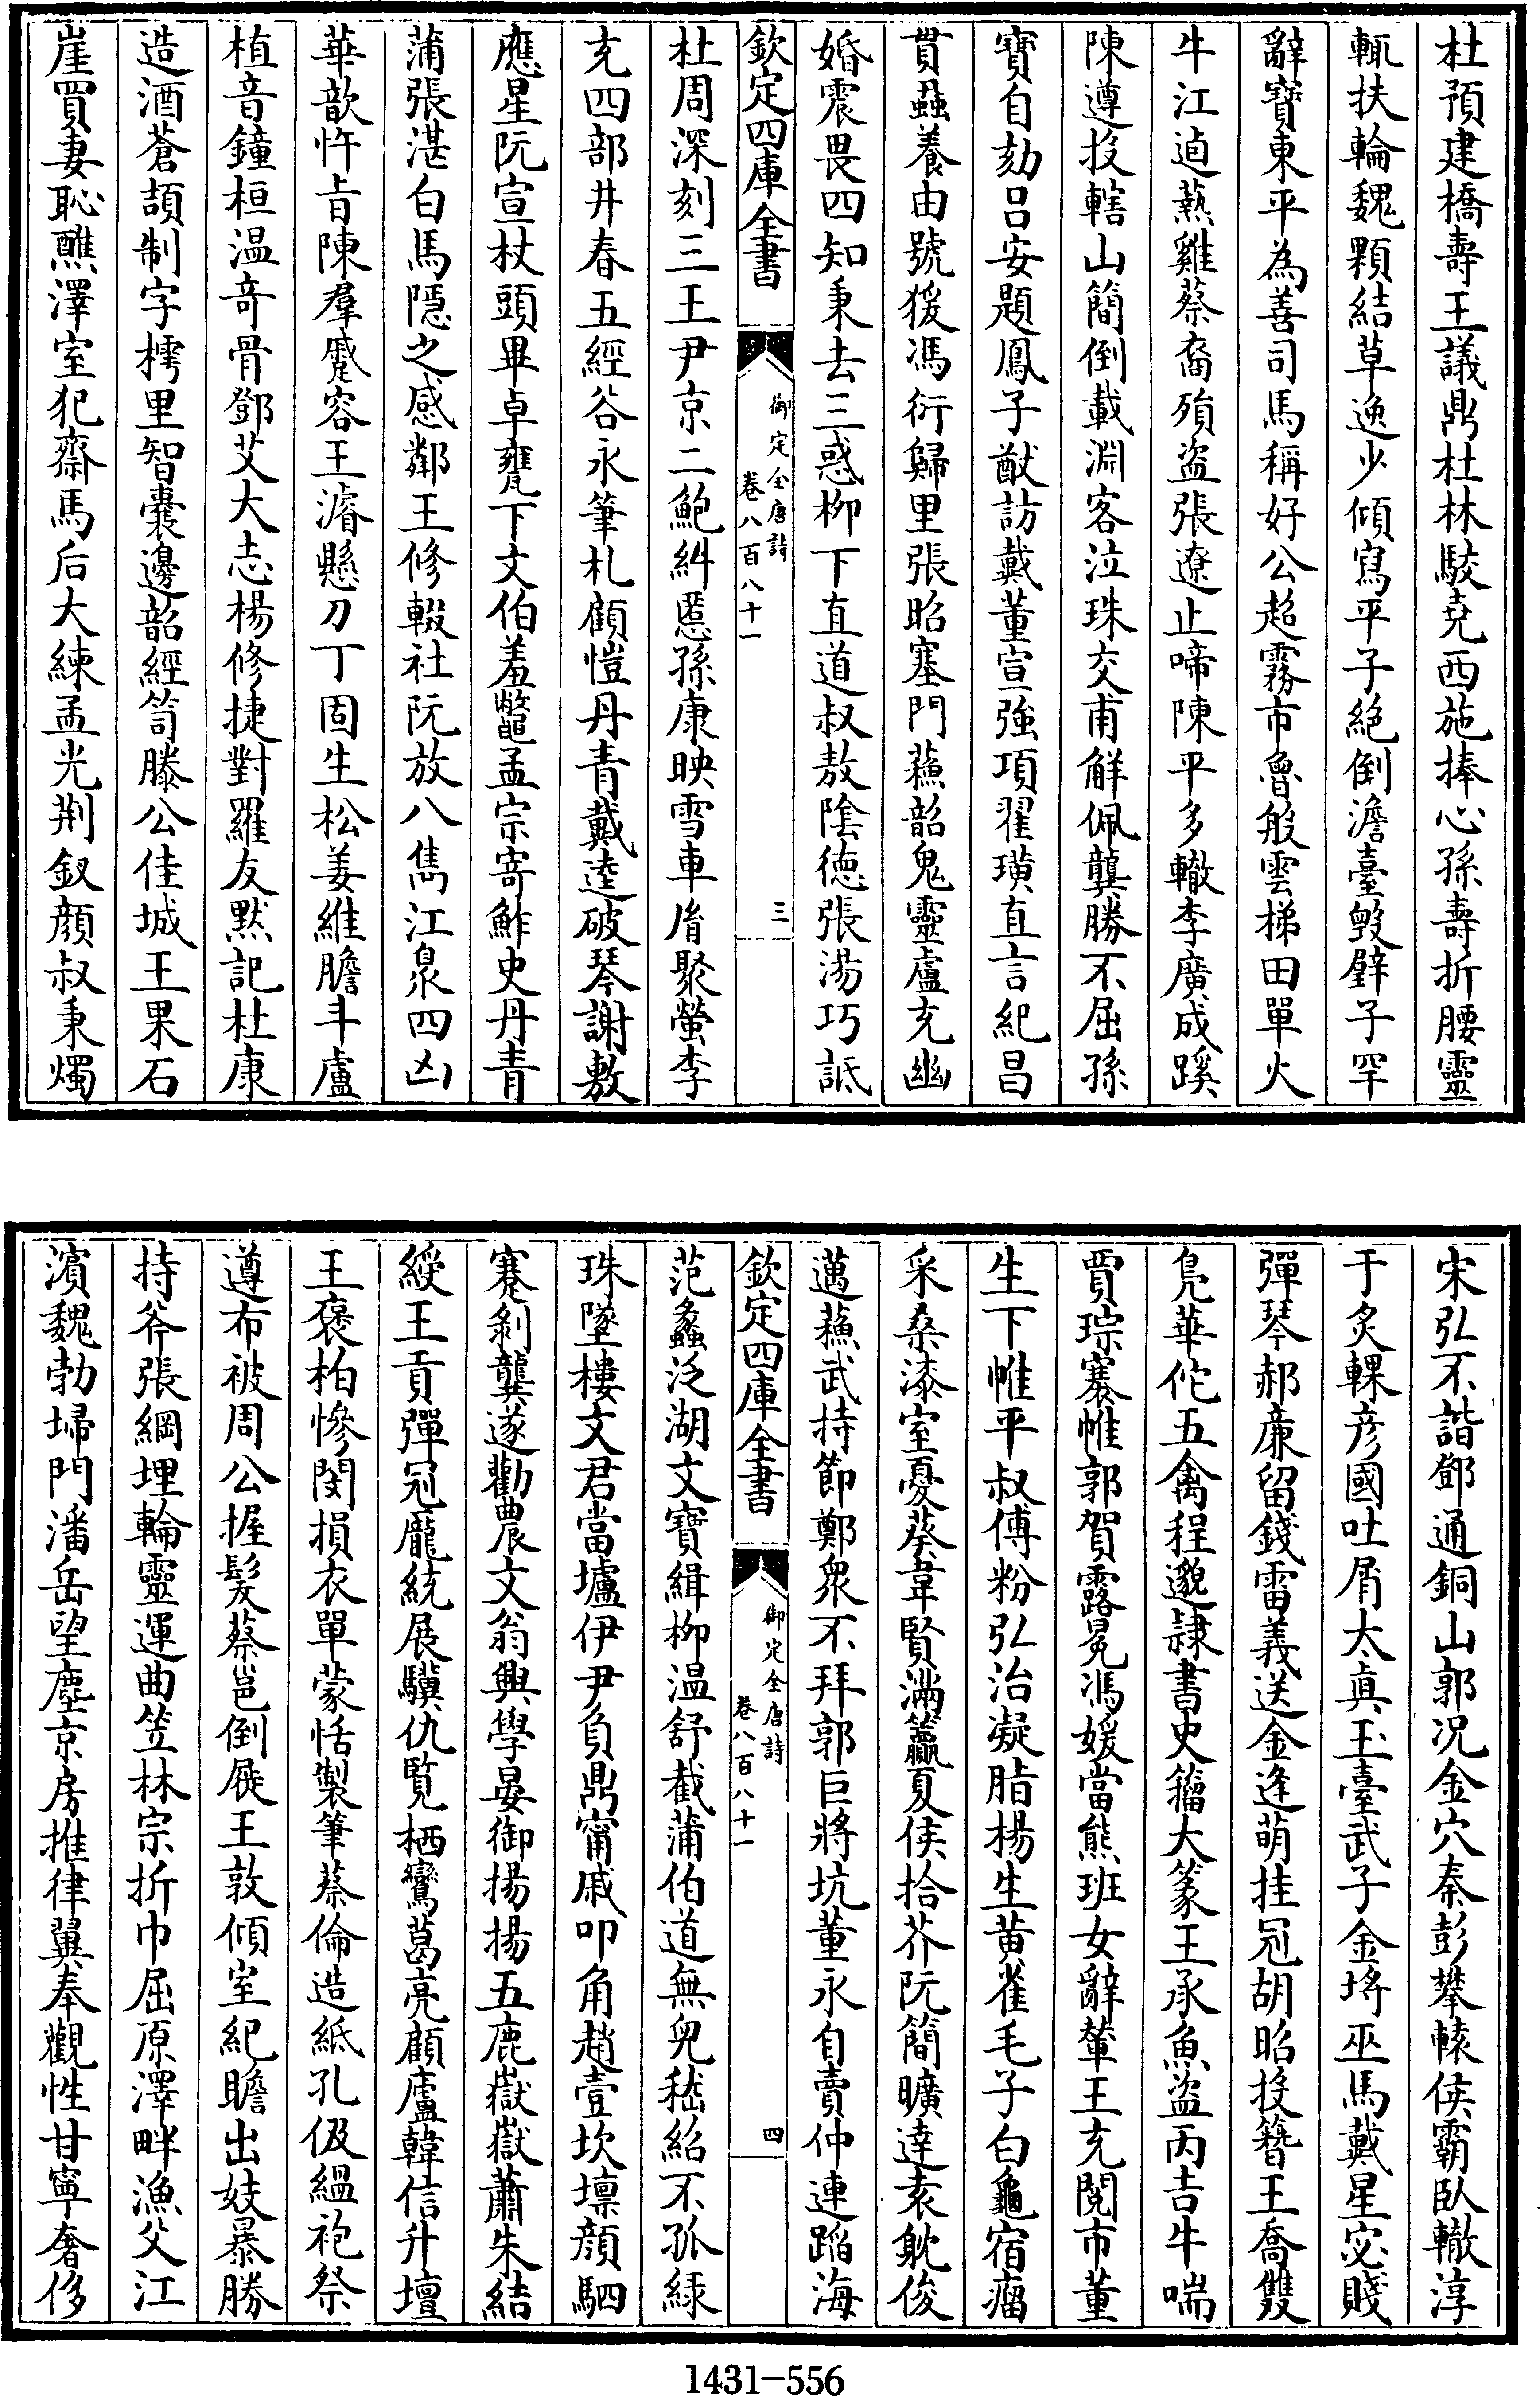 杜預建橋壽王議鼎杜林駮堯西施捧心孫壽折腰靈
輒扶輪魏顆結草逸少傾寫平子絕倒澹臺毀璧子罕
辭寶東平為善司馬稱好公超霧市魯般雲梯田單火
牛江逌爇雞蔡裔殞盜張遼止啼陳平多轍李廣成蹊
陳遵投轄山簡倒載淵客泣珠交甫解佩龔勝不屈孫
寶自劾呂安題鳳子猷訪戴董宣強項翟璜直言紀昌
貫蝨養由號猨馮衍歸里張昭塞門蘓韶鬼靈盧充幽
婚震畏四知秉去三惑柳下直道叔敖陰德張湯巧詆
欽定四庫全書
御定全唐詩
卷八百八十一
三
杜周深刻三王尹京二鮑糾慝孫康映雪車胤聚螢李
充四部井春五經谷永筆札顧愷丹青戴逵破琴謝敷
應星阮宣杖頭畢卓甕下文伯羞鼈孟宗寄鮓史丹青
蒲張湛白馬隱之感鄰王修輟社阮放八雋江泉四凶
華歆忤旨陳羣蹙容王濬懸刀丁固生松姜維膽斗盧
植音鐘桓温奇骨鄧艾大志楊修捷對羅友默記杜康
造酒蒼頡制字樗里智囊邊韶經笥滕公佳城王果石
崖買妻恥醮澤室犯齋馬后大練孟光荆釵顔叔秉燭
宋弘不諧鄧通銅山郭况金穴秦彭攀轅侯霸臥轍淳
于炙輠彦國吐屑太真玉臺武子金埒巫馬戴星宓賤
彈琴郝廉留錢雷義送金逢萌挂冠胡昭投簪王喬雙
鳬華佗五禽程邈隷書史籀大篆王承魚盜丙吉牛喘
賈琮褰帷郭賀露冕馮媛當熊班女辭輦王充閱市董
生下帷平叔傅粉弘治凝脂楊生黄雀毛子白龜宿瘤
采桑漆室憂葵韋賢滿籯夏侯拾芥阮簡曠達袁躭俊
邁蘓武持節鄭衆不拜郭巨將坑董永自賣仲連蹈海
欽定四庫全書
御定全唐詩
卷八百八十一
四
范蠡泛湖文寶緝柳温舒截蒲伯道無兒嵇紹不孤緑
珠墜樓文君當壚伊尹負鼎甯戚叩角趙壹坎壈顔駟
蹇剥龔遂勸農文翁興學晏御揚揚五鹿嶽嶽蕭朱結
綬王貢彈冠龎統展驥仇覧栖鸞葛亮顧廬韓信升壇
王褒柏慘閔損衣單蒙恬製筆蔡倫造紙孔伋緼袍祭
遵布被周公握髮蔡邕倒屣王敦傾室紀瞻出妓暴勝
持斧張綱埋輪靈運曲笠林宗折巾屈原澤畔漁父江
濱魏勃埽門潘岳望塵京房推律翼奉觀性甘寧奢侈
1431-556